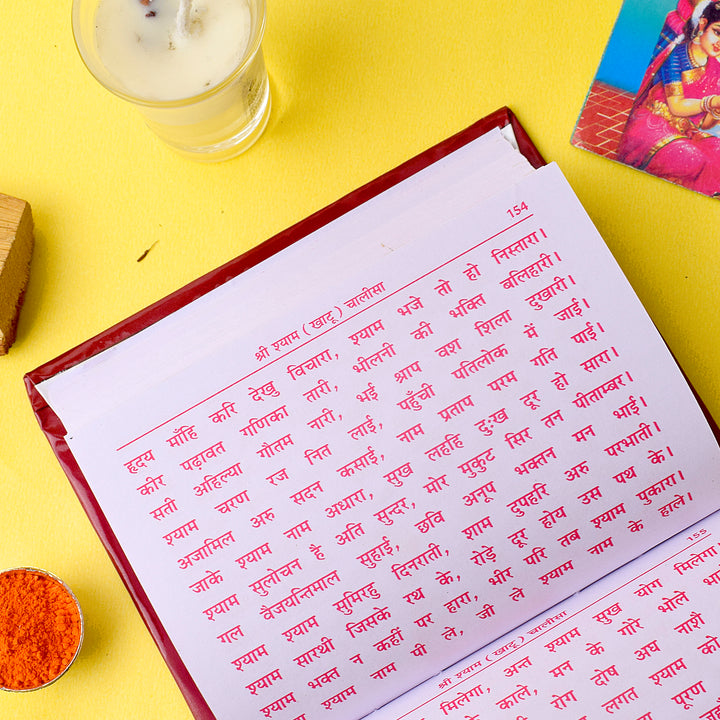 154
श्री श्याम (खाटू) चालीसा
हृदय माँहि करि देखु विचारा, श्याम भजे तो हो निस्तारा।
कीर पढ़ावत गणिका तारी, भीलनी की भक्ति बलिहारी।
सती अहिल्या गौतम नारी, भई श्राप वश शिला दुखारी।
श्याम चरण रज नित लाई, पहुँची पतिलोक में जाई।
अजामिल अरु सदन कसाई, नाम प्रताप परम गति पाई।
जाके श्याम नाम अधारा, सुख लहहि दुःख दूर हो सारा।
श्याम सुलोचन है अति सुन्दर, मोर मुकुट सिर तन पीताम्बर।
गल वैजयन्तिमाल सुहाई, छवि अनूप भक्तन मन भाई।
श्याम सुमिरहु दिनराती, शाम दुपहरि अरु परभाती।
श्याम सारथी जिसके रथ के, रोड़े दूर होय उस पथ के।
श्याम भक्त न कहीं पर हारा, भीर परि तब श्याम पुकारा।
श्याम नाम पी ले, जी ले श्याम नाम के हाले।
155
श्री श्याम (खाटू) चालीसा
मिलेगा, अन्त श्याम सुख योग मिलेगा।
काले, मन के गोरे भोले
रोग दोष अघ नाशै
लगत श्याम को
पूरण